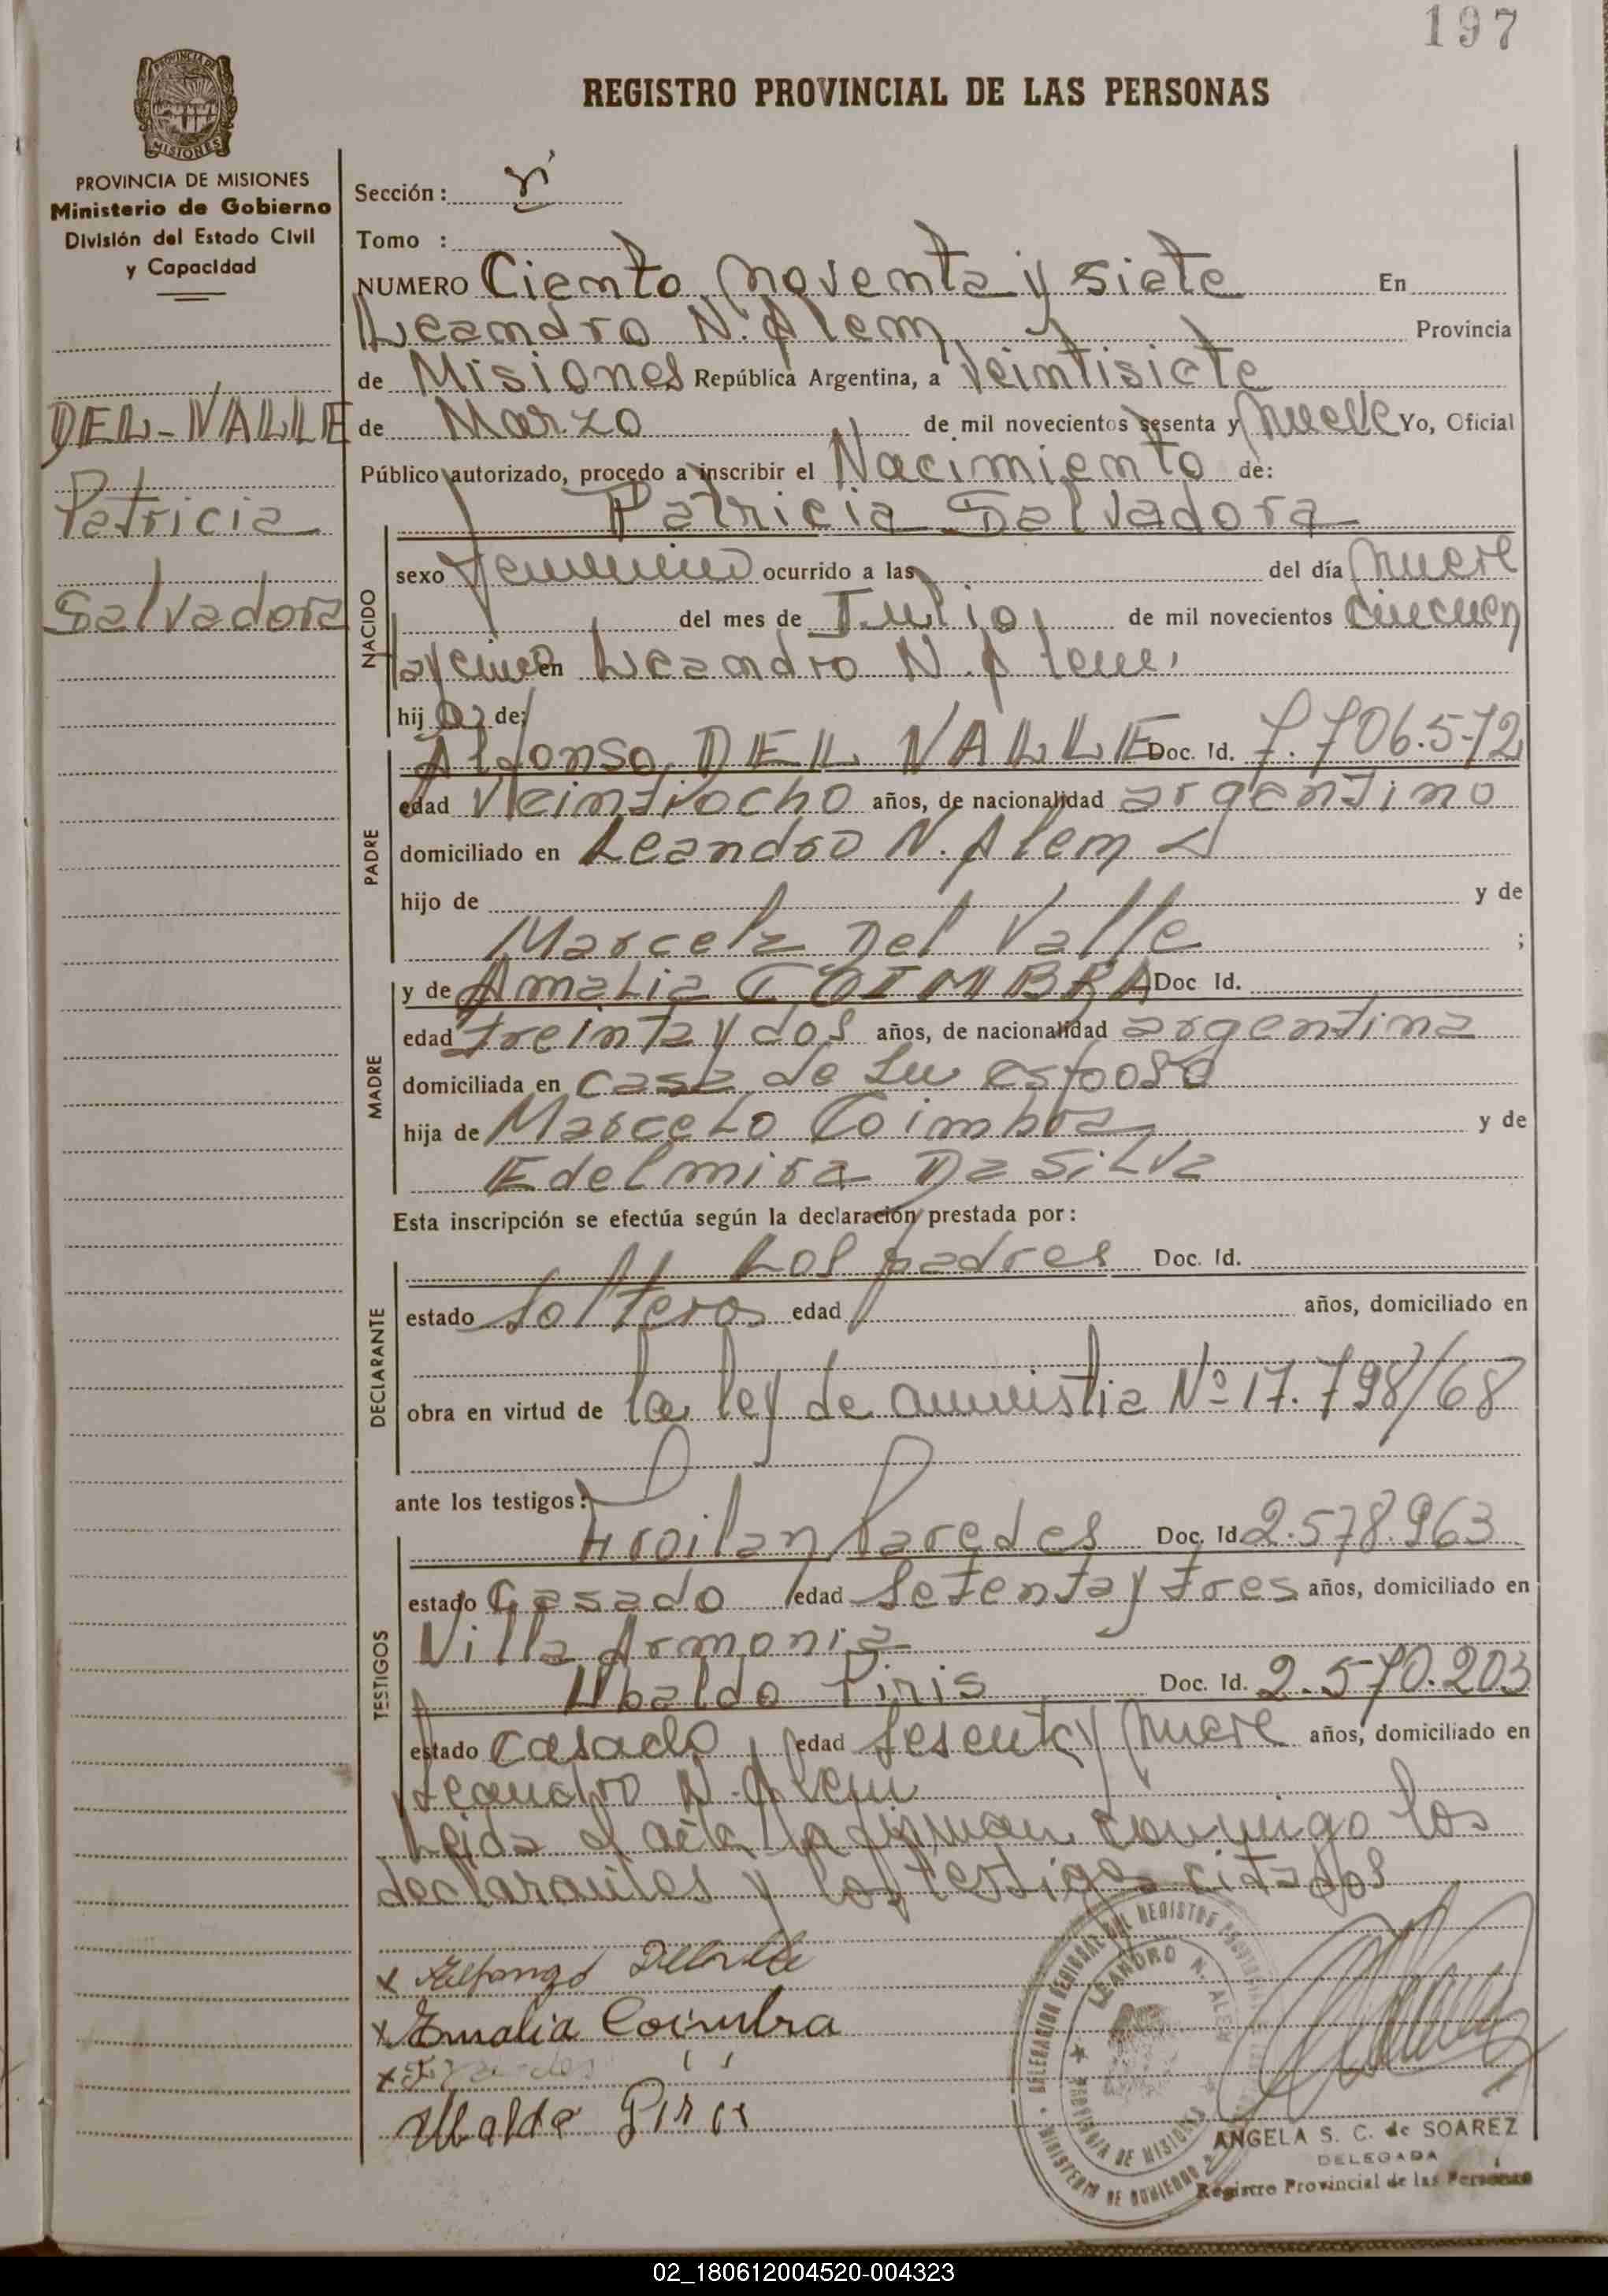 197
REGISTRO PROVINCIAL DE LAS PERSONAS
PROVINCIA DE MISIONES
Ministerio de Gobierno
División del Estado Civil
y Capacidad
DEL-VALLE
Patricia
Salvadora
Sección :
Tomo :
NUMERO Ciento noventa y siete En
Leandro N. Alem Provincia
de Misiones República Argentina, a Veintisiete
de Marzo de mil novecientos sesenta y nueve Yo, Oficial
Público autorizado, procedo a inscribir el Nacimiento de:
Patricia Salvadora
NACIDO
sexo femenino ocurrido a las del día nueve
del mes de Julio de mil novecientos cincuen
ta y cinco en Leandro N. Alem
hija de:
PADRE
Alfonso DEL VALLE Doc. Id. 7.706.572
edad Veintiocho años, de nacionalidad argentino
domiciliado en Leandro N. Alem
hijo de y de
Marcela Del Valle ;
MADRE
y de Amalia COIMBRA Doc Id.
edad treinta y dos años, de nacionalidad argentina
domiciliada en casa de su esposo
hija de Marcelo Coimbra y de
Edelmira Da Silva
Esta inscripción se efectúa según la declaración prestada por:
DECLARANTE
Los padres Doc. Id.
estado Solteros edad años, domiciliado en
obra en virtud de la ley de amnistia Nº 17.798/68
ante los testigos:
TESTIGOS
Froilan Paredes Doc. Id 2.578.963
estado Casado edad Setenta y tres años, domiciliado en
Villa Armonia
Ubaldo Piris Doc. Id. 2.570.203
estado casado edad Sesenta y nueve años, domiciliado en
Leandro N. Alem
Leida el acta la firman conmigo los
declarantes y los testigos citados
x Alfonzo Delvalle
x Emalia Coimbra
x
Ubaldo Piris
DELEGACION REGIONAL DEL REGISTRO PROVINCIAL
LEANDRO N. ALEM
PROVINCIA DE MISIONES
MINISTERIO DE GOBIERNO
ANGELA S. C. de SOAREZ
DELEGADA
Registro Provincial de las Personas
02_180612004520-004323